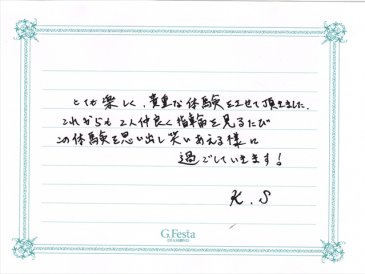 とても楽しく、貴重な体験をさせて頂きました。
これからも2人仲良く指輪を見るたび
この体験を思い出し笑いあえる様に
過ごしていきます!
K.S
G.Festa